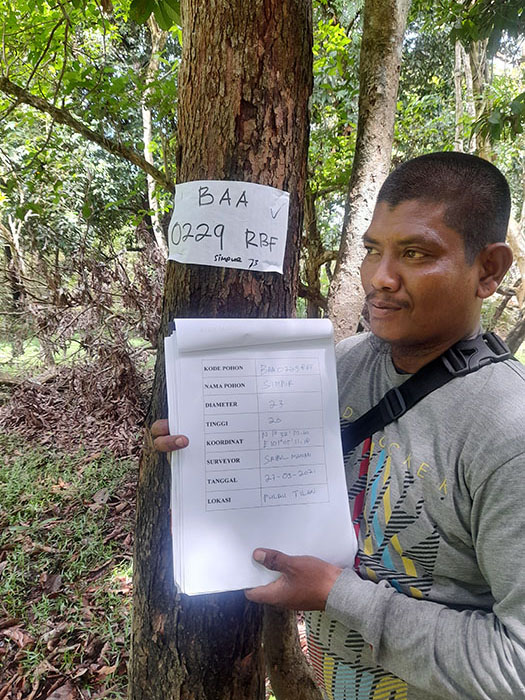 BAA
0229 RBF
Simpur 73
KODE POHON BAA0229RBF
NAMA POHON SIMPUR
DIAMETER 23
TINGGI 20
KOORDINAT
SURVEYOR
TANGGAL 27-03-2021
LOKASI PULAU